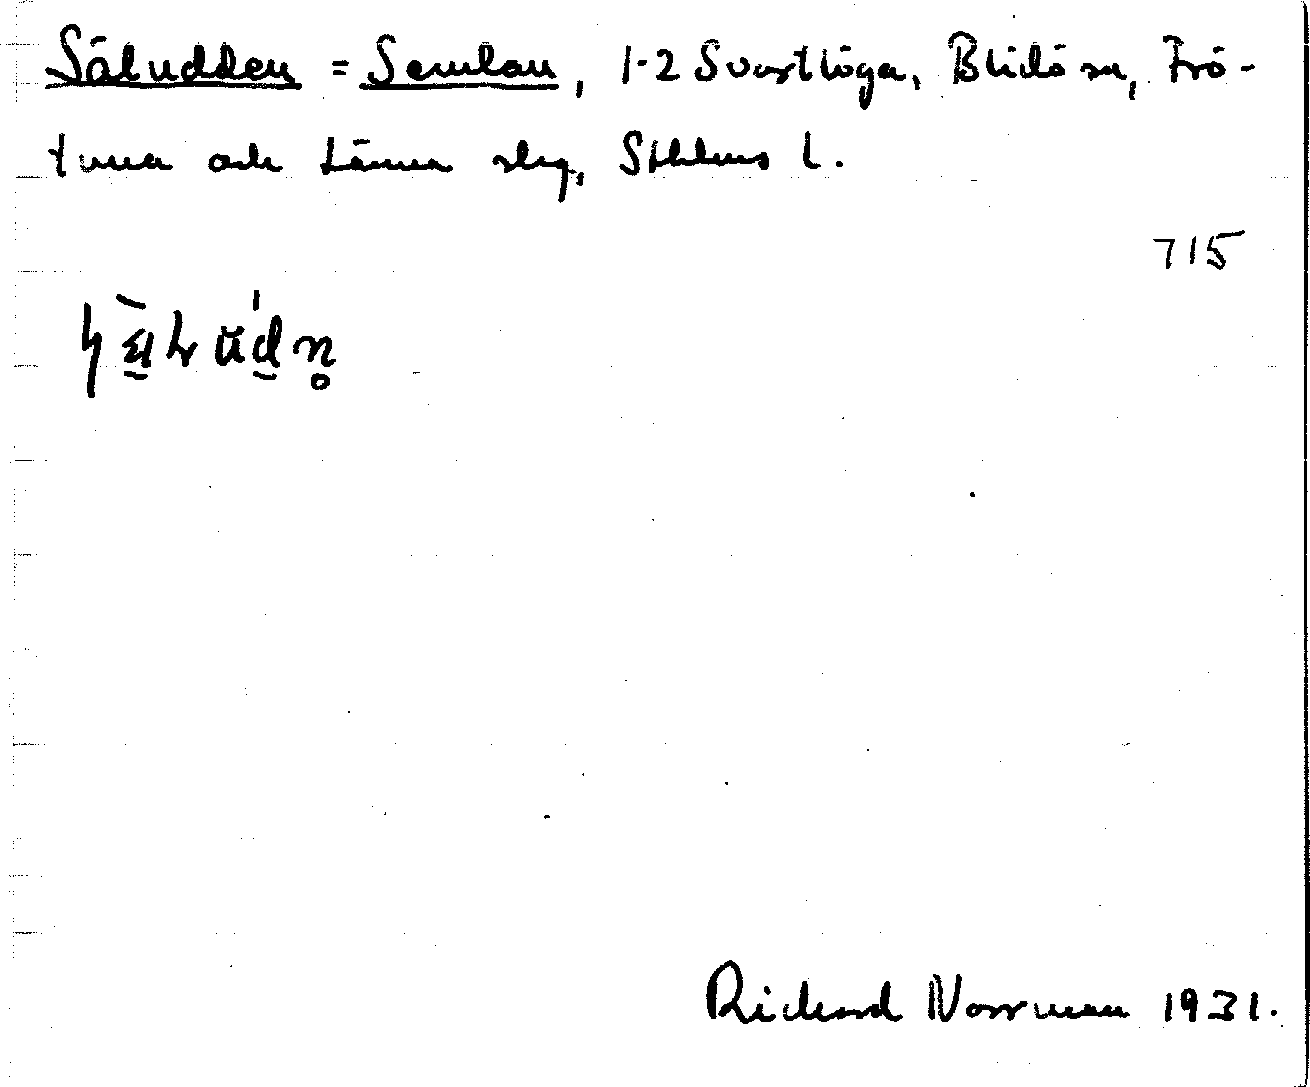 Säludden = Semlan, 1-2 Svartlöga, Blidö sn, Frö-
tuna och Länna skg, Sthlms l.
715
Richard Norrman 1931.